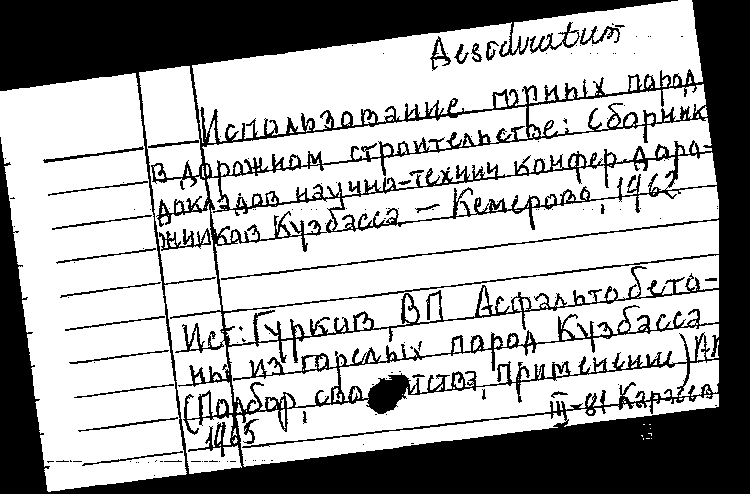 Использование горных пород
в дорожном строительстве: Сборник
докладов научно-технич. конфер. доро-
жников Кузбасса. – Кемерово, 1962
Ист: Гурков, ВП Асфальтобето-
ны из горелых пород Кузбасса
(Подбор, применение)
III-81
1965